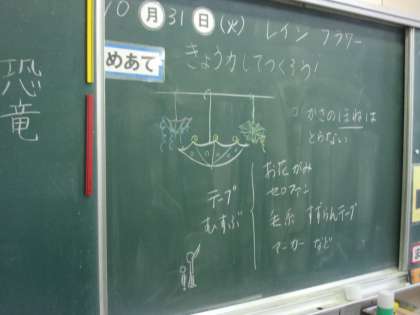 恐竜
10月31日(火) レインフラワー
めあて
きょう力してつくろう!
かさのほねは
とらない
テープ
むすぶ
おたがみ
セロファン
毛糸 すずらんテープ
マーカー など